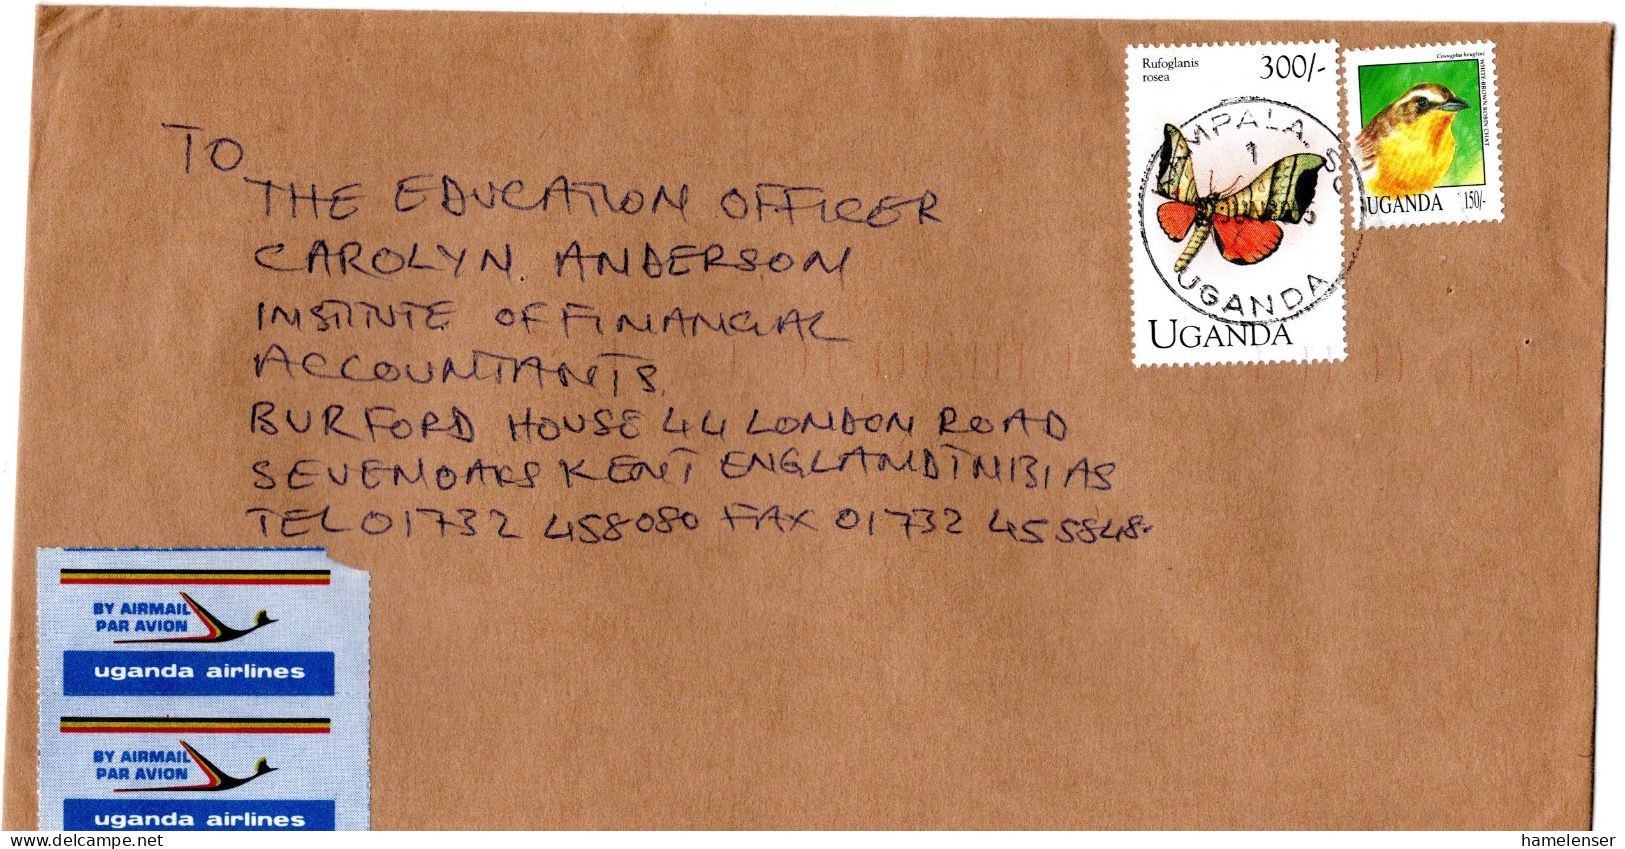 Rufoglanis
rosea
300/-
KAMPALA
1
UGANDA
UGANDA
Cossypha heuglini
WHITE BROWN ROBIN CHAT
UGANDA 150/-
TO
THE EDUCATION OFFICER
CAROLYN ANDERSON
INSTITUTE OF FINANCIAL
ACCOUNTANTS
BURFORD HOUSE 44 LONDON ROAD
SEVENOAKS KENT ENGLAND TN131AS
TEL 01732 458080 FAX 01732 455848
BY AIRMAIL
PAR AVION
uganda airlines
BY AIRMAIL
PAR AVION
uganda airlines
hamelenser